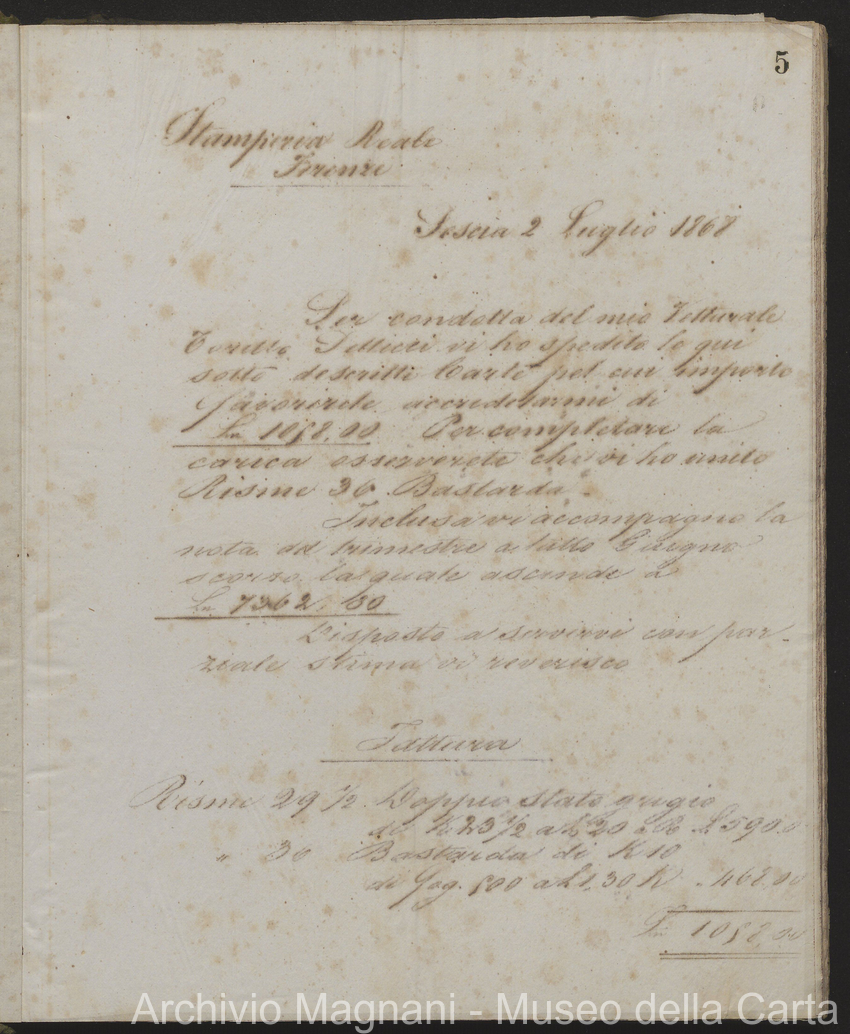 5
Stamperia Reale
Firenze
Pescia 2 Luglio 1868
Per condotta del mio Vetturale
Torello Pellicci vi ho spedito le qui
sotto descritti Carte pel cui importo
favorirete accreditarmi di
Ln 1058,00 Per completare la
carica osserverete che vi ho unito
Risme 36 Bastarda.
Inclusa vi accompagno la
nota del trimestre a tutto Giugno
scorso la quale ascende a
Ln 7362,80
Disposto a servirvi con par-
ziale stima vi reverisco
Fattura
Risme 29 1/2 Doppio Stato grigio
di K 23 1/2 a L 20 L 590.0
" 36 Bastarda di K 10
di fog. 500 a L 1.30 K " 468,00
Ln 1058,00
Archivio Magnani - Museo della Carta